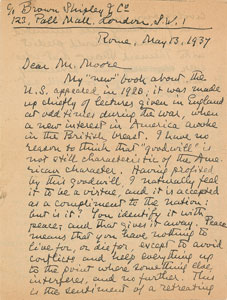 c/o Brown Shipley & Co
123, Pall Mall, London, S.W. 1
Rome, May 13, 1937
Dear Mr. Moore
My "new" book about the
U.S. appeared in 1920; it was made
up chiefly of lectures given in England
at odd times during the war, when
a new interest in America awoke
in the British breast. I have no
reason to think that "goodwill" is
not still characteristic of the Ame-
rican character. Having profited
by this goodwill, I naturally feel
it to be a virtue, and it is accepted
as a compliment to the nation:
but is it? You identify it with
peace; and that gives it away. Peace
means that you have nothing to
live for, or die for, except to avoid
conflicts and keep everything up
to the point where something else
interferes, and no further. This
is the sentiment of a retreating